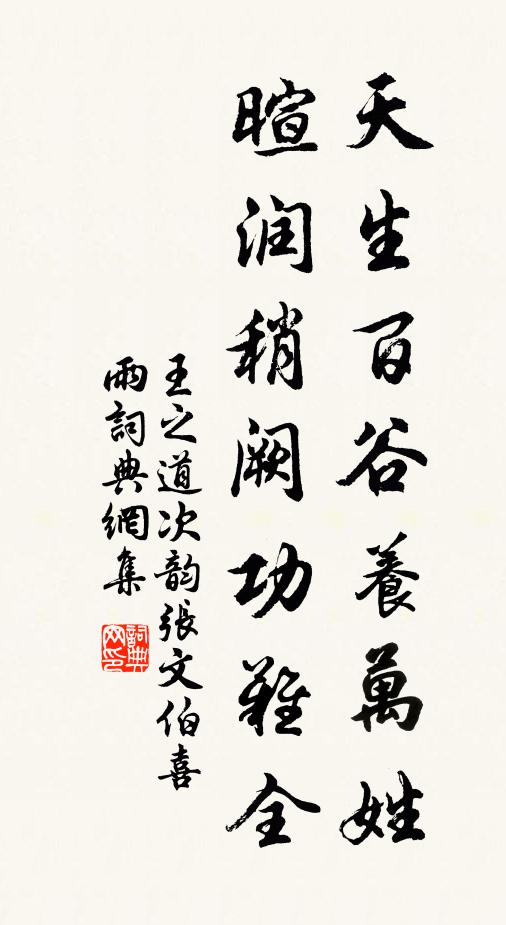 天生百谷養萬姓
暄润稍阙功難全
王之道次韵張文伯喜
雨詞典網集
詞典网印